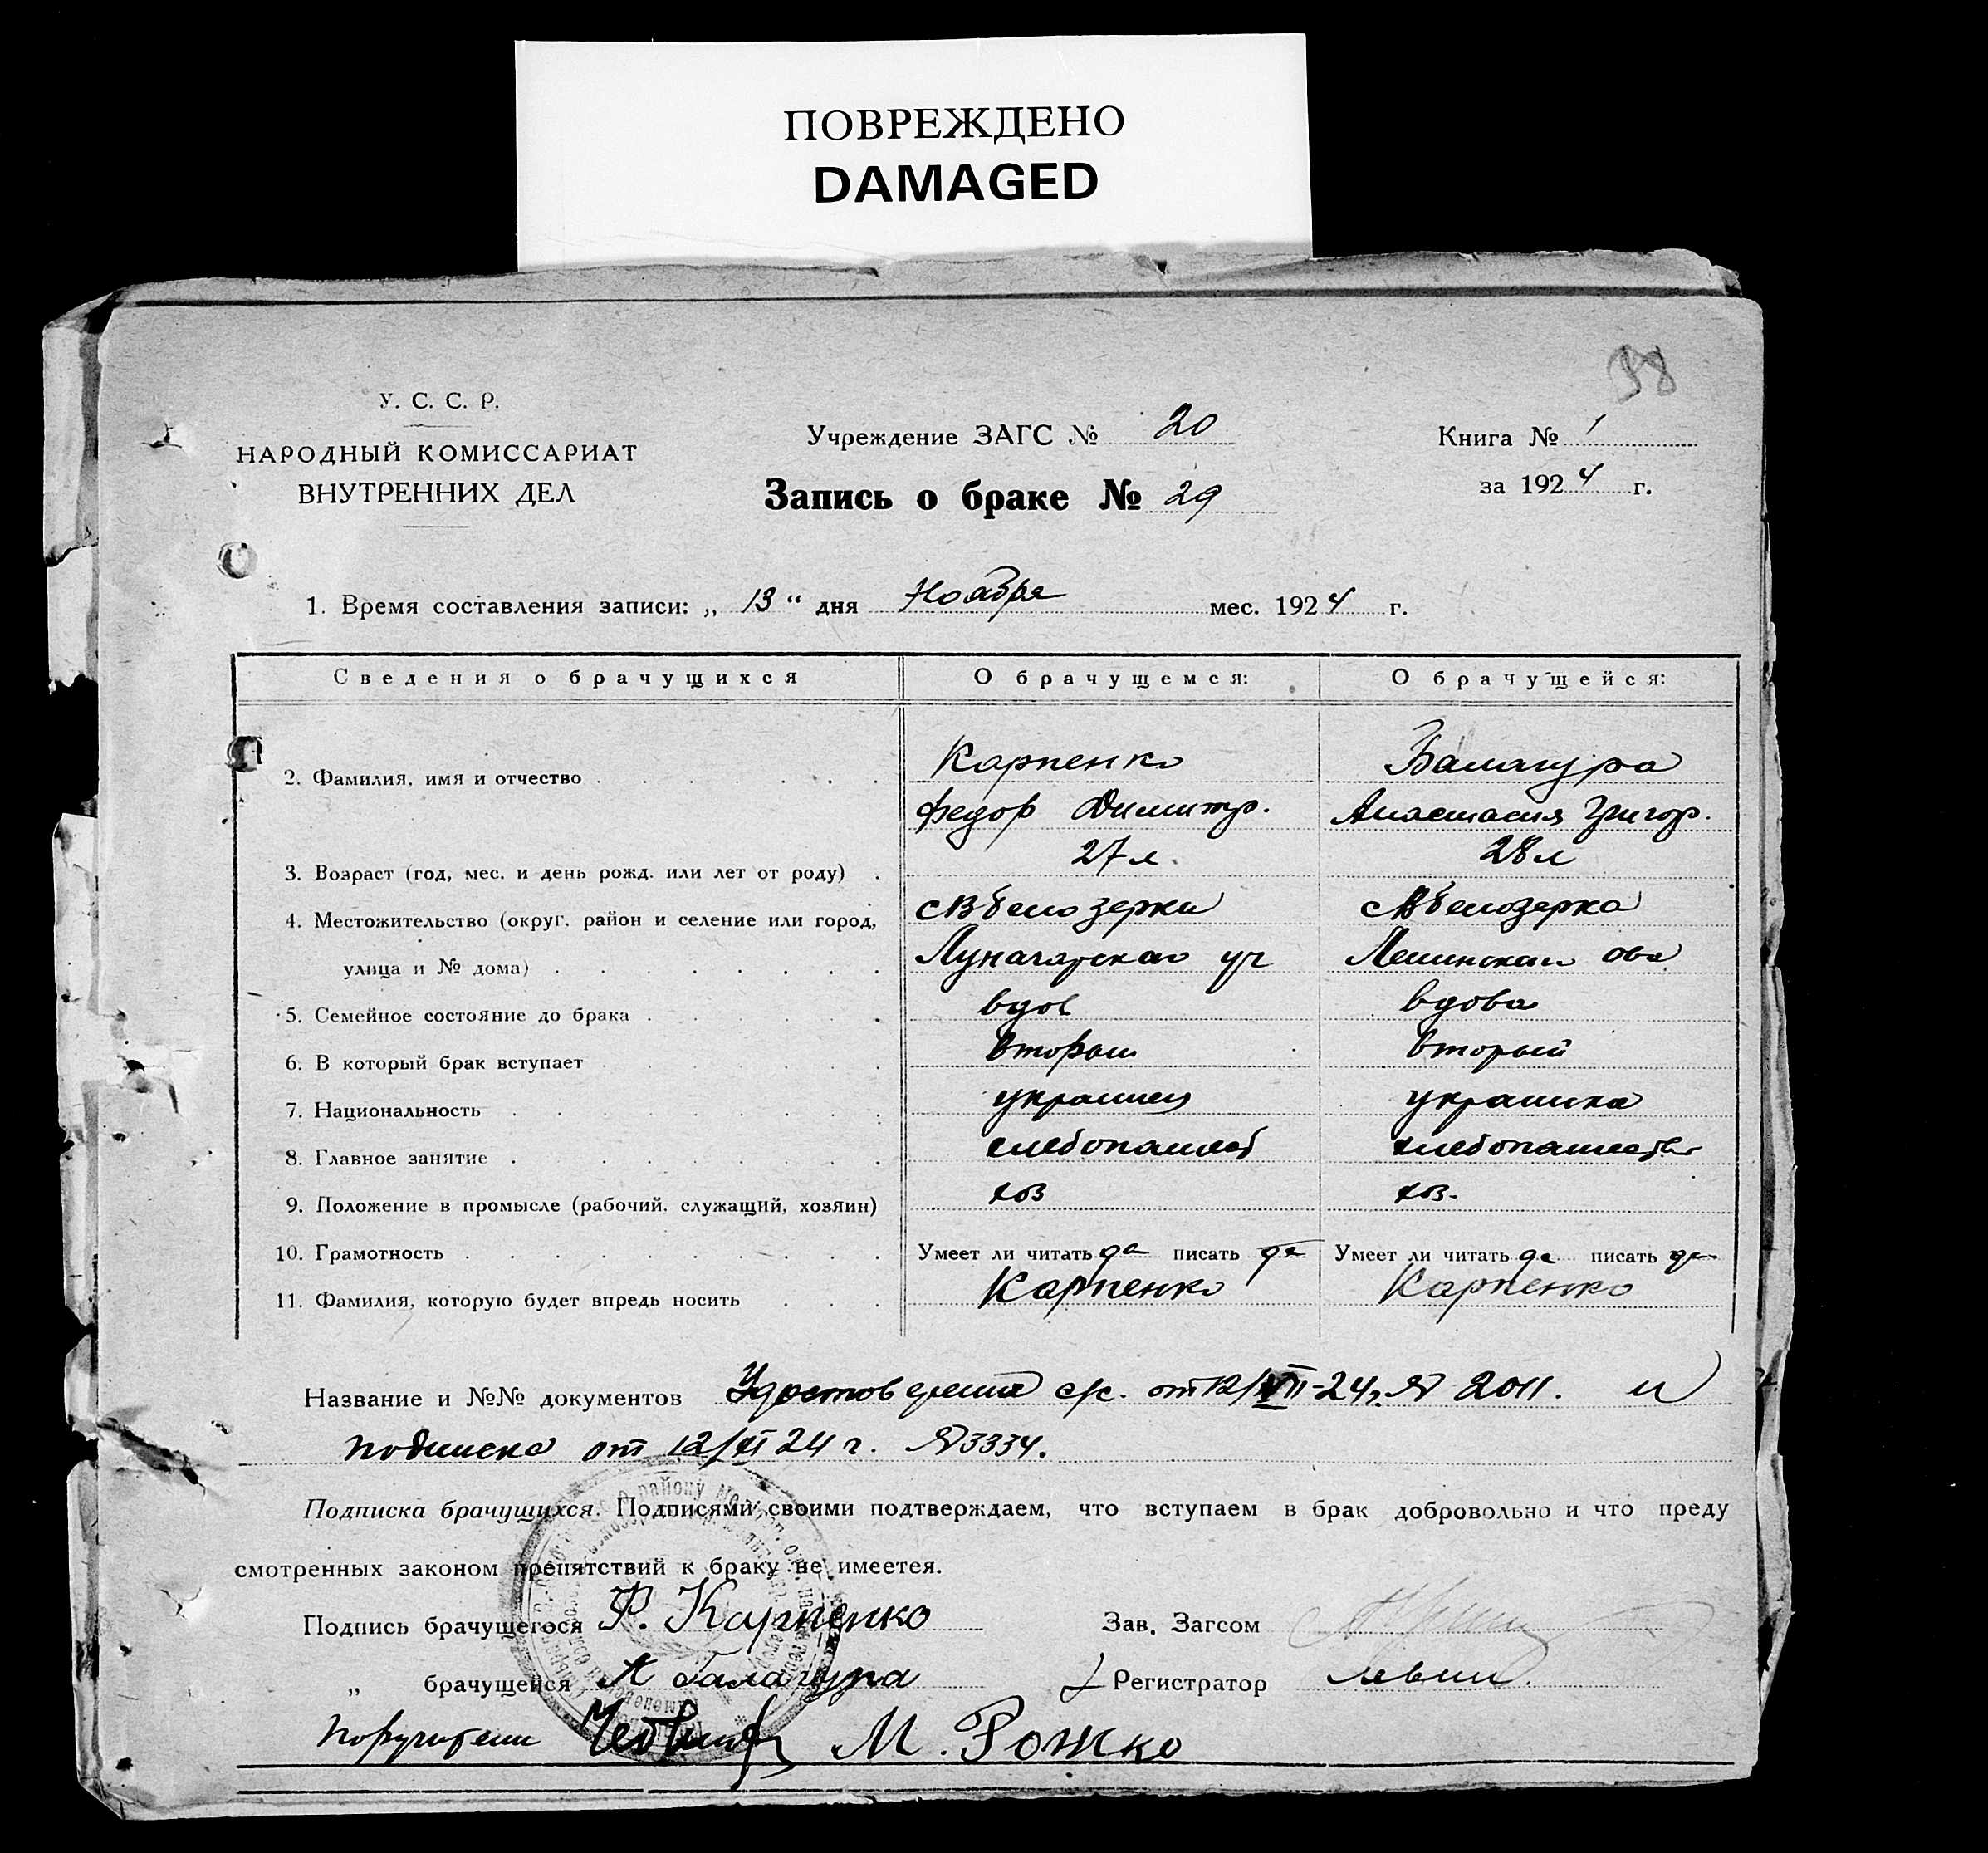 ПОВРЕЖДЕНО
DAMAGED
38
У. С. С. Р.
НАРОДНЫЙ КОМИССАРИАТ
ВНУТРЕННИХ ДЕЛ
Учреждение ЗАГС № 20
Запись о браке № 29
Книга № 1
за 1924 г.
1. Время составления записи: „ 13 “ дня Ноября мес. 1924 г.
Сведения о брачущихся О брачущемся: О брачущейся:
2. Фамилия, имя и отчество Карпенко Балагура
Федор Димитр. Анастасия Григор.
3. Возраст (год, мес. и день рожд. или лет от роду) 27 л. 28 л
4. Местожительство (округ, район и селение или город, с В белозерки с В белозерка
улица и № дома) Луначарская уч Ленинская
5. Семейное состояние до брака вдов вдова
6. В который брак вступает вторый вторый
7. Национальность украинец украинка
8. Главное занятие хлебопашест хлебопашество
9. Положение в промысле (рабочий, служащий, хозяин) хоз хоз.
10. Грамотность Умеет ли читать да писать да Умеет ли читать да писать да
11. Фамилия, которую будет впредь носить Карпенко Карпенко
Название и №№ документов Удостоверения с/с. от 12/VII-24 г. № 2011. и
подписка от 12/XI 24 г. № 3334.
Подписка брачущихся. Подписями своими подтверждаем, что вступаем в брак добровольно и что преду
смотренных законом препятствий к браку не имеется.
Подпись брачущегося Ф. Карпенко Зав. Загсом
„ брачущейся А Галагура Регистратор
поручители М. Рожко